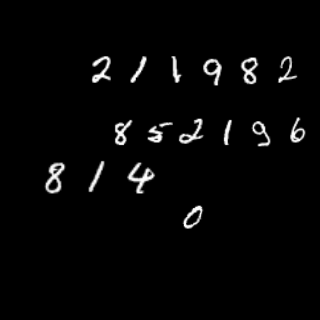 211982
852196
814
0